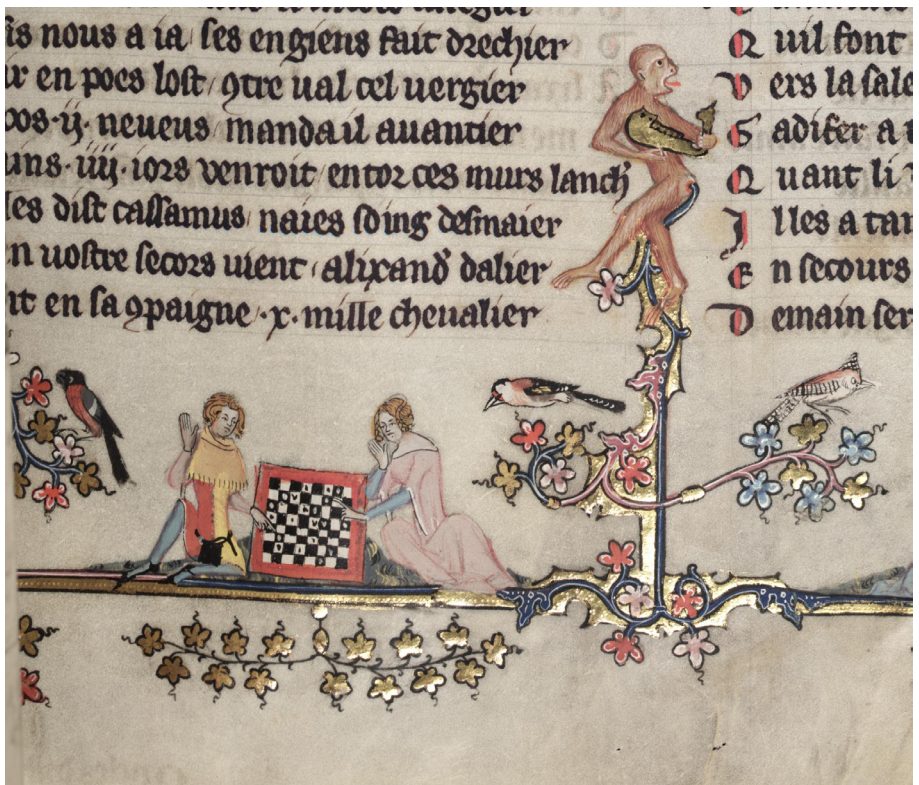 is nous a ia ses engiens fait drechier
r en poes lost ꝯtre ual cel uergier
vos ·ij· neueus manda il auantier
uns ·iiij· iors venroit entor ces murs lanch
les dist cassamus naies soing desmaier
n uostre secors uient alixand dalier
nt en sa ꝯpaigne ·x· mille cheualier
Q uil font
V ers la sale
G adifer a
Q uant li
I lles a tan
E n secours
D emain ser